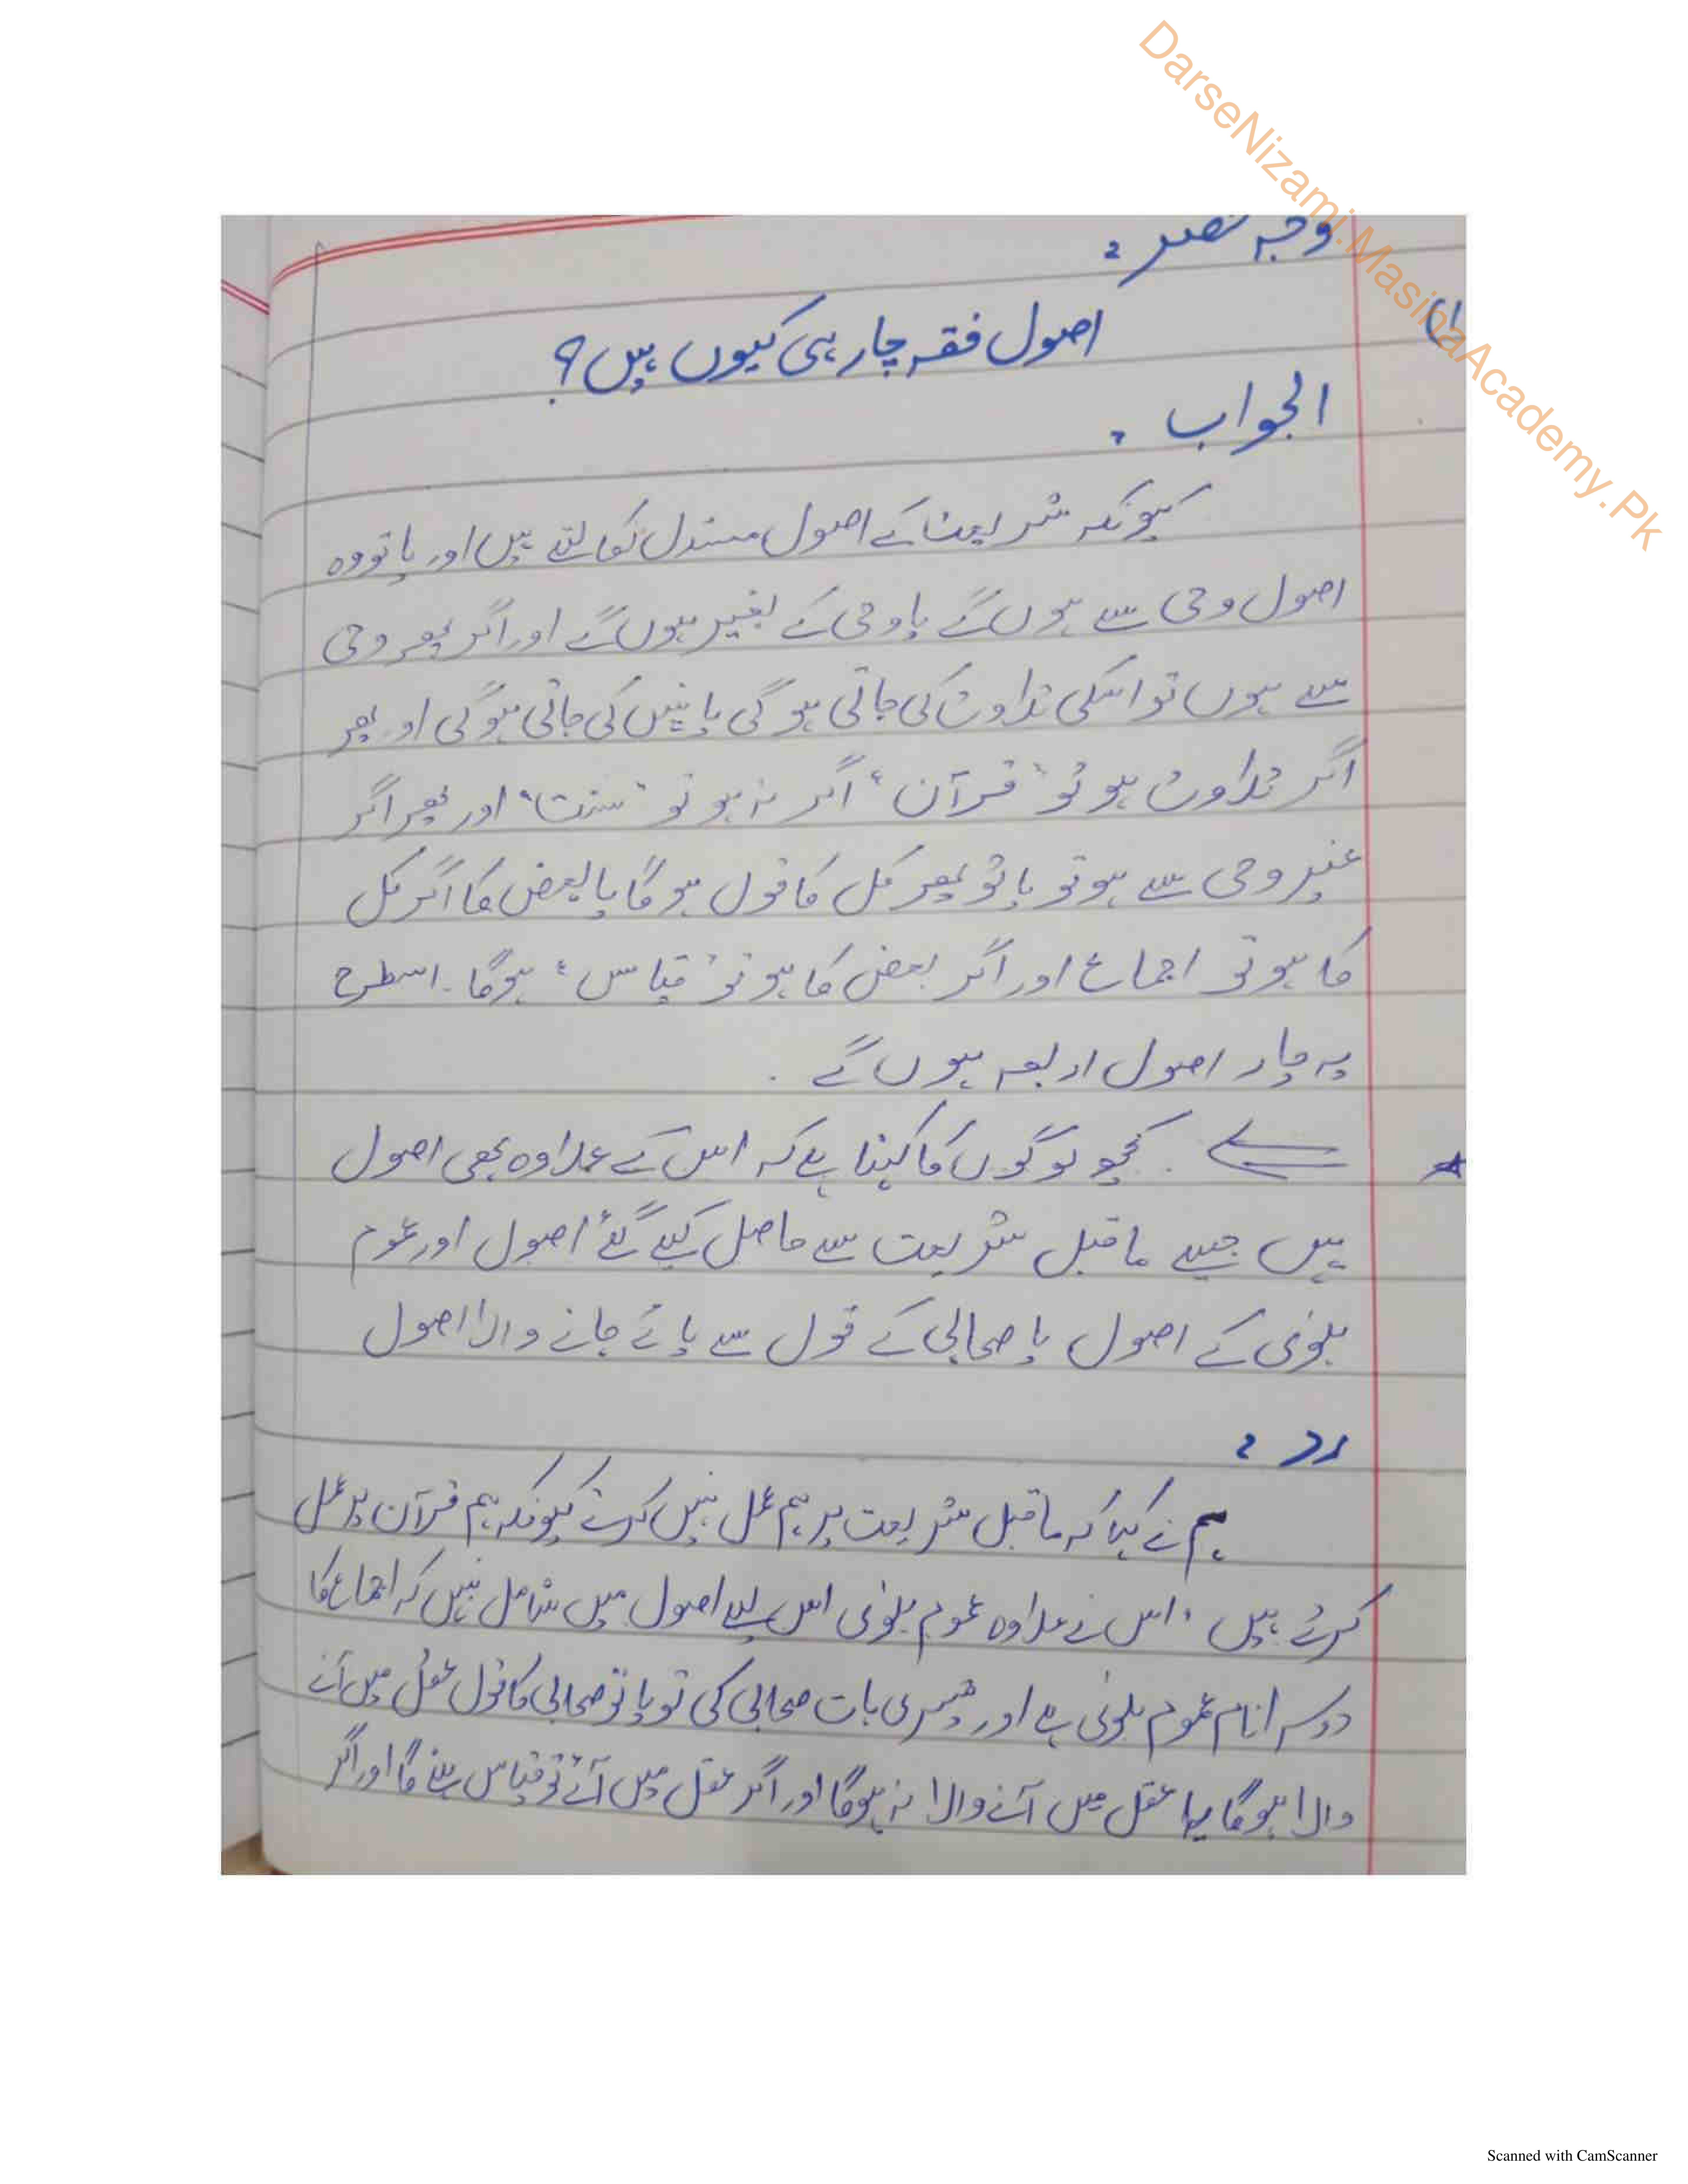 DarseNizami.MasihaAcademy.Pk
وجہ حصر :
(1
اصول فقہ چار ہی کیوں ہیں؟
الجواب :
کیونکہ شریعت کے اصول مستدل کو لیتے ہیں اور یا تو وہ
اصول وحی سے ہوں گے یا وحی کے بغیر ہوں گے اور اگر پھر وحی
سے ہوں تو اسکی تلاوت کی جاتی ہو گی یا نہیں کی جاتی ہو گی اور پھر
اگر تلاوت ہو تو "قرآن" اگر نہ ہو تو "سنت" اور پھر اگر
غیر وحی سے ہو تو یا تو پھر کل کا قول ہو گا یا بعض کا اگر کل
کا ہو تو اجماع اور اگر بعض کا ہو تو "قیاس" ہو گا. اسطرح
یہ چار اصول اربعہ ہوں گے .
کچھ لوگوں کا کہنا ہے کہ اس کے علاوہ بھی اصول
ہیں جیسے ماقبل شریعت سے حاصل کیے گئے اصول اور عموم
بلوٰی کے اصول یا صحابی کے قول سے پائے جانے والا اصول
رد :
ہم نے کہا کہ ماقبل شریعت پر ہم عمل نہیں کرتے کیونکہ ہم قرآن پر عمل
کرتے ہیں ، اس کے علاوہ عموم بلوٰی اس لیے اصول میں شامل نہیں کہ اجماع کا
دوسرا نام عموم بلوٰی ہے اور تیسری بات صحابی کی تو یا تو صحابی کا قول عقل میں آنے
والا ہو گا یا عقل میں آنے والا نہ ہو گا اور اگر عقل میں آئے تو قیاس بنے گا اور اگر
Scanned with CamScanner